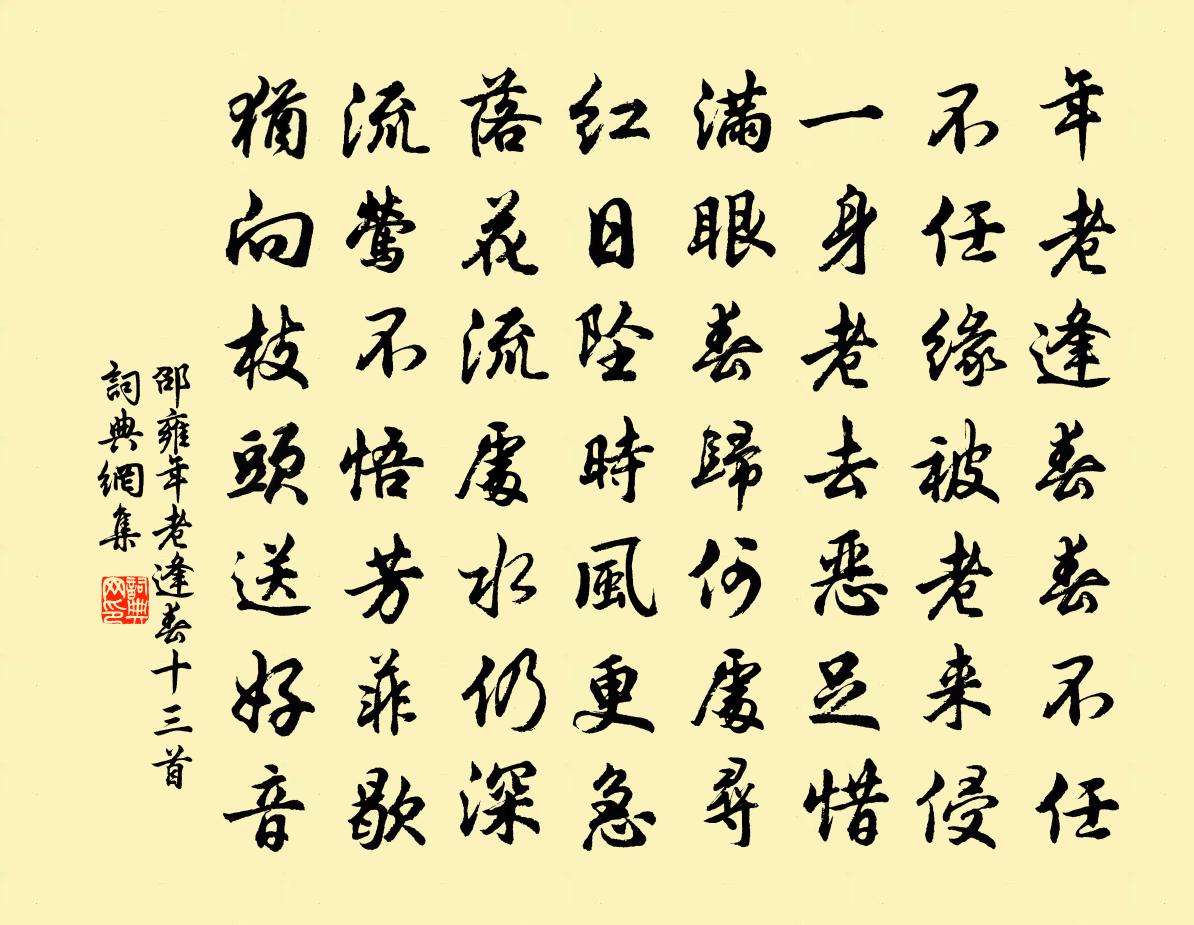 年老逢春春不任
不任緣被老来侵
一身老去恶足惜
滿眼春歸何處尋
红日坠時風更急
落花流處水仍深
流莺不悟芳菲歇
猶向枝頭送好音
邵雍年老逢春十三首
詞典網集
詞典
网印